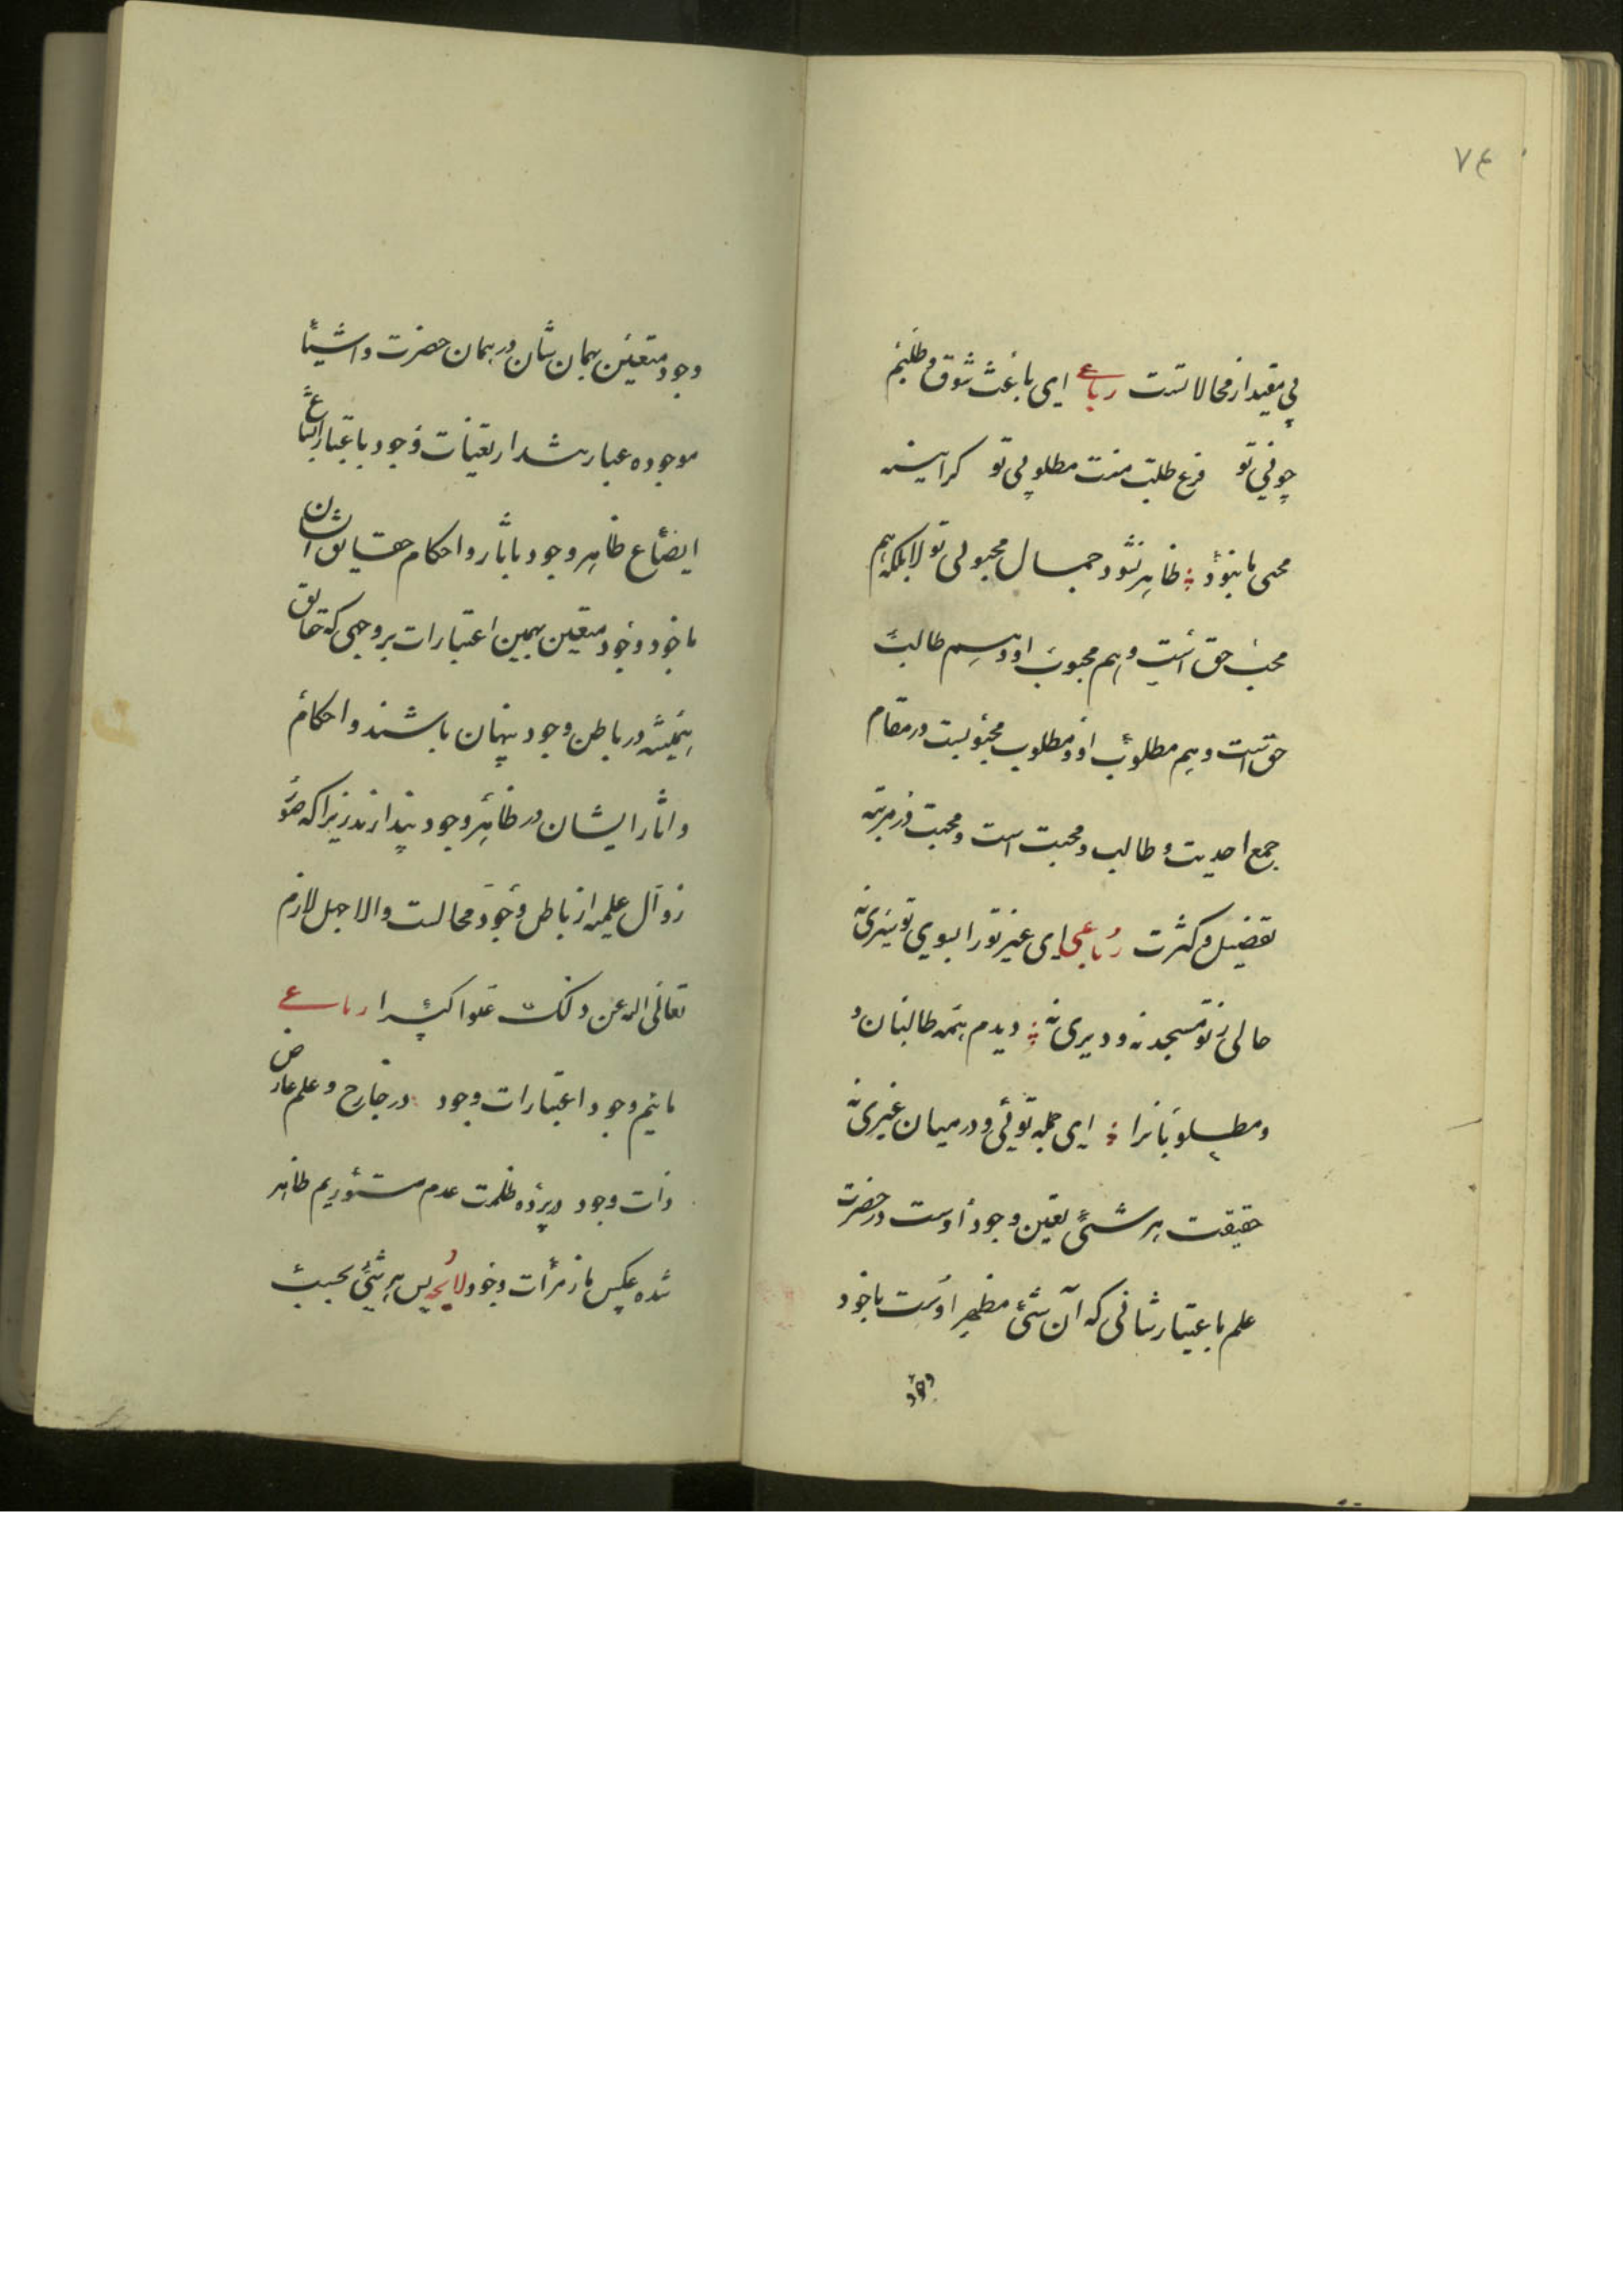 ٧٤
بی مقید از محالاتست رباعی ای باعث شوق و طلبم
چونی تو فرع طلب منت مطلوبی تو کر آینه
محبی ما نبود ظاهر نشود جمال محبوبی تو لا بلکه هم
محب حق است و هم محبوب او و هم طالب
حق است و هم مطلوب او و مطلوب محبوبست در مقام
جمع احدیت و طالب و محبت است و محبت در مرتبه
تفضیل و کثرت رباعی ای غیر ترا بسوی تو سیری نه
خالی ز تو مسجد نه و دیری نه دیدم همه طالبان و
و مطلوبانرا ای جمله توئی و در میان غیری نه
حقیقت هر شئی تعین وجود اوست در حضرت
علم باعتبار شانی که آن شئی مظهر اوست یا خود
وجود
وجود متعین بهمان شان در همان حضرت و اشیا
موجوده عبارتند از تعینات وجود باعتبار انباع
ایضاع ظاهر وجود باثار و احکام حقایق اشان
یا خود وجود متعین بهمین اعتبارات بر وجهی که حقایق
همیشه در باطن وجود پنهان باشند و احکام
و اثار ایشان در ظاهر وجود پیدا زیرا که صور
زوال علمیه از باطن وجود محالست والا جهل لازم
تعالی الله عن ذلک علوا کبیرا رباعی
مائیم وجود اعتبارات وجود در خارج و علم عارض
ذات وجود در پرده ظلمت عدم مستوریم ظاهر
شده عکس ما ز مرآت وجود لایحه پس هر شئی بحسب